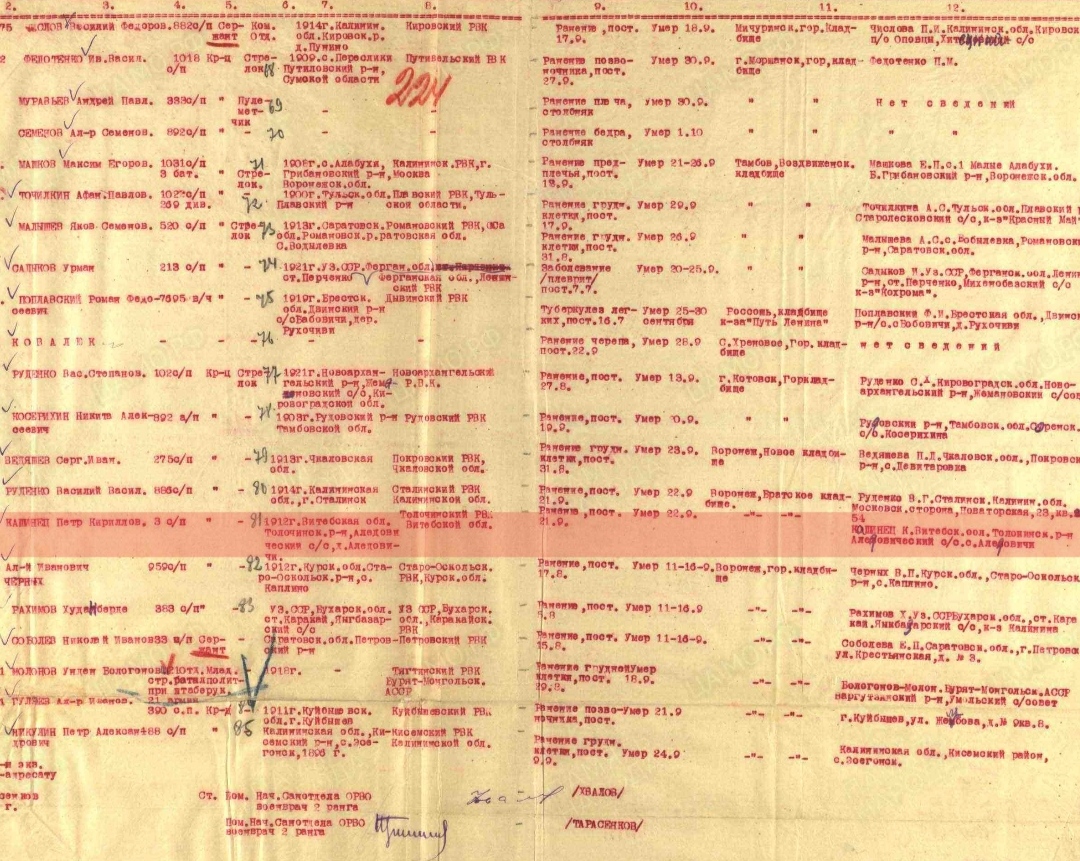 2. 3. 4. 5. 6. 7. 8. 9. 10. 11. 12.
Федоров. 882с/п Сержант Ком. Отд. 1914г.Калинин. обл.Кировск.р. д.Пунино Кировский РВК Ранение,пост. 17.9. Умер 18.9. Мичуринск,гор.Кладбище Числова П.И.Калининск.обл.Кировск п/о Оповцы, с/с
ФЕДОТЕНКО Ив.Васил. 1018 с/п Кр-ц Стрелок 68 1909.с.Пересопки Путиловский р-н, Сумской области Путивельский РВК Ранение позвоночника,пост. 27.9. Умер 30.9. г.Моршанск,гор,кладбище Федотенко П.М.
224
МУРАВЬЕВ Андрей Павл. 333с/п " Пулеметчик 69 - - Ранение плеча, столбняк Умер 30.9. " " Нет сведений
СЕМЕНОВ Ал-р Семенов. 892с/п " - 70 - - Ранение бедра, столбняк Умер 1.10 " " " "
МАШКОВ Максим Егоров. 1031с/п 3 бат. " Стрелок. 71 1908г.с.Алабухи, Грибановский р-н, Воронежск.обл. Калининск.РВК,г. Москва Ранение предплечья,пост. 18.9. Умер 21-26.9 Тамбов,Воздвиженск. кладбище Машкова Е.П.с.1 Малые Алабухи. Б.Грибановский р-н,Воронежск.обл.
ТОЧИЛКИН Афан.Павлов. 1022с/п 269 див. " - 72 1900г.Тульск.обл. Плавский р-н Плавский РВК,Тульской области. Ранение грудн. клетки,пост. 17.9. Умер 29.9 " " Точилкина А.С.Тульск.обл.Плавский Старолесковский с/с,к-за"Красный
МАЛЫШЕВ Яков Семенов. 520 с/п " Стрелок 73 1913г.Саратовск. обл.Романовск.р. С.Бодылевка Романовский РВК, Саратовская обл. Ранение грудн. клетки,пост. 31.8. Умер 26.9 " " Малышева А.С.с.Бобылевка,Романовский р-н,Саратовск.обл.
САДЫКОВ Урман 213 с/п " - 74 1921г.Уз.ССР,Ферган.обл ст.Перченко Ферганская обл.,Ленинский РВК Заболевание /плеврит/ пост.7.7. Умер 20-25.9. " " Садыков И.Уз.ССР,Ферганск.обл.Ленин р-н,ст.Перченко,Михенобазский с/с к-з"Кохрома".
ПОПЛАВСКИЙ Роман Федосеевич 7695 в/ч " - 75 1919г.Брестск. обл.Двинский р-н с/сБабовичи,дер. Рухочиви Дывинский РВК Туберкулез легких,пост.16.7 Умер 25-30 сентября Россошь,кладбище к-за"Путь Ленина" Поплавский Ф.И.Брестская обл., р-н/с.сБобовичи,д.Рухочиви
КОВАЛЕК - - - 76 - - Ранение черепа, пост.22.9 Умер 28.9 С.Хреновое,Гор.кладбище нет сведений
РУДЕНКО Вас.Степанов. 102с/п Кр-ц Стрелок 77 1921г.Новоархангельский р-н, Кировоградской обл. Новоархангельский Р.В.К. Ранение,пост. 27.8. Умер 13.9. г.Котовск,Горкладбище Руденко С. Кировоградск.обл.Новоархангельский р-н,Жемановский с/сов
КОСЕРИХИН Никита Алексеевич 392 с/п " - 78 1903г.Рудовский р-н Тамбовской обл. Рудовский РВК Ранение,пост. 19.9. Умер 20.9. " " Рудовский р-н,Тамбовск.обл. с/с.Косерихина
ВЕДЯШЕВ Серг.Иван. 275с/п " - 79 1913г.Чкаловская обл. Покровский РВК, Чкаловской обл. Ранение грудн. клетки,пост. 31.8. Умер 23.9. Воронеж,Новое кладбище Ведяшева П.Д.Чкаловск.обл.,Покровск р-н,с.Девитаровка
РУДЕНКО Василий Васил. 886с/п " - 80 1914г.Калининская обл.,г.Сталинск Сталинский РВК Калининской обл. Ранение,пост. 21.9. Умер 22.9 Воронеж,Братское кладбище Руденко В.Г.Сталинск.Калинин.обл. Московск.сторона,Новаторская,23,кв. 54
КАШИНЕЦ Петр Кириллов. 3 с/п " - 81 1912г.Витебская обл. Толочинск.р-н,Аледовический с/с,д.Аледовичи. Толочинский РВК Витебской обл. Ранение,пост. 21.9. Умер 22.9. " " КАШИНЕЦ К.Витебск.обл.Толочинск.р-н Аледовический с/с.с.Аледовичи
Ал-й Иванович ЧЕРНЫХ 959с/п " - 82 1912г.Курск.обл.Старо-Оскольск.р-н,с. Каплино Старо-Оскольск. РВК,Курск.обл. Ранение,пост. 17.8. Умер 11-16-9. Воронеж,гор.кладбище Черных В.П.Курск.обл.,Старо-Оскольск р-н,с.Каплино.
РАХИМОВ Худайберде 383 с/п" - 83 УЗ.ССР,Бухарск.обл. ст.Каракай,Янгбазарский с/с УЗ ССР,Бухарск. обл.,Каракайск. РВК Ранение,пост. 5.8 Умер 11-16.9 -"- -"- Рахимов Х.Уз.ССРБухарск.обл.,ст.Каракай. с/с,к-з Калинина
СОБОЛЕВ Николай Иванов 33 п/п Сержант - Саратовск.обл.Петровский р-н Петровский РВК Ранение,пост. 15.8. Умер 11-16-9. -"- -"- Соболева Е.П.Саратовск.обл.,г.Петровск ул.Крестьянская,д. № 3.
МОЛОНОВ Унден Вологонов 210тд. стр.баталполит. при штаберук. 21 армии Млад. 1918г. - Тигтинский РВК Бурят-Монгольск. АССР Ранение грудной клетки,пост. 29.8. Умер 18.9. -"- -"- Бологонов-Молон.Бурят-Монгольск.АССР р-н,Умольский с/совет
ГУЛЯЕВ Ал-р Иванов. 390 с.п. Кр-ц 84 1911г.Куйбышевск. обл.г.Куйбышев Куйбышевский РВК Ранение позвоночника,пост. Умер 21.9 -"- -"- г.Куйбышев,ул. д.№ 9кв.8.
НИКУЛИН Петр Александрович 488 с/п " 85 Калининская обл.,Кисемский р-н,с.Зоегонск,1896 г. Кисемский РВК Калининской обл. Ранение грудн. клетки,пост. 9.9. Умер 24.9 -"- -"- Калининская обл.,Кисемский район, с.Зоегонск.
-и экз.
-адресату
г.
Ст. Пом. Нач.Санотдела ОРВО военврач 2 ранга /ХВАЛОВ/
Пом.Нач.Санотдела ОРВО военврач 2 ранга /ТАРАСЕНКОВ/